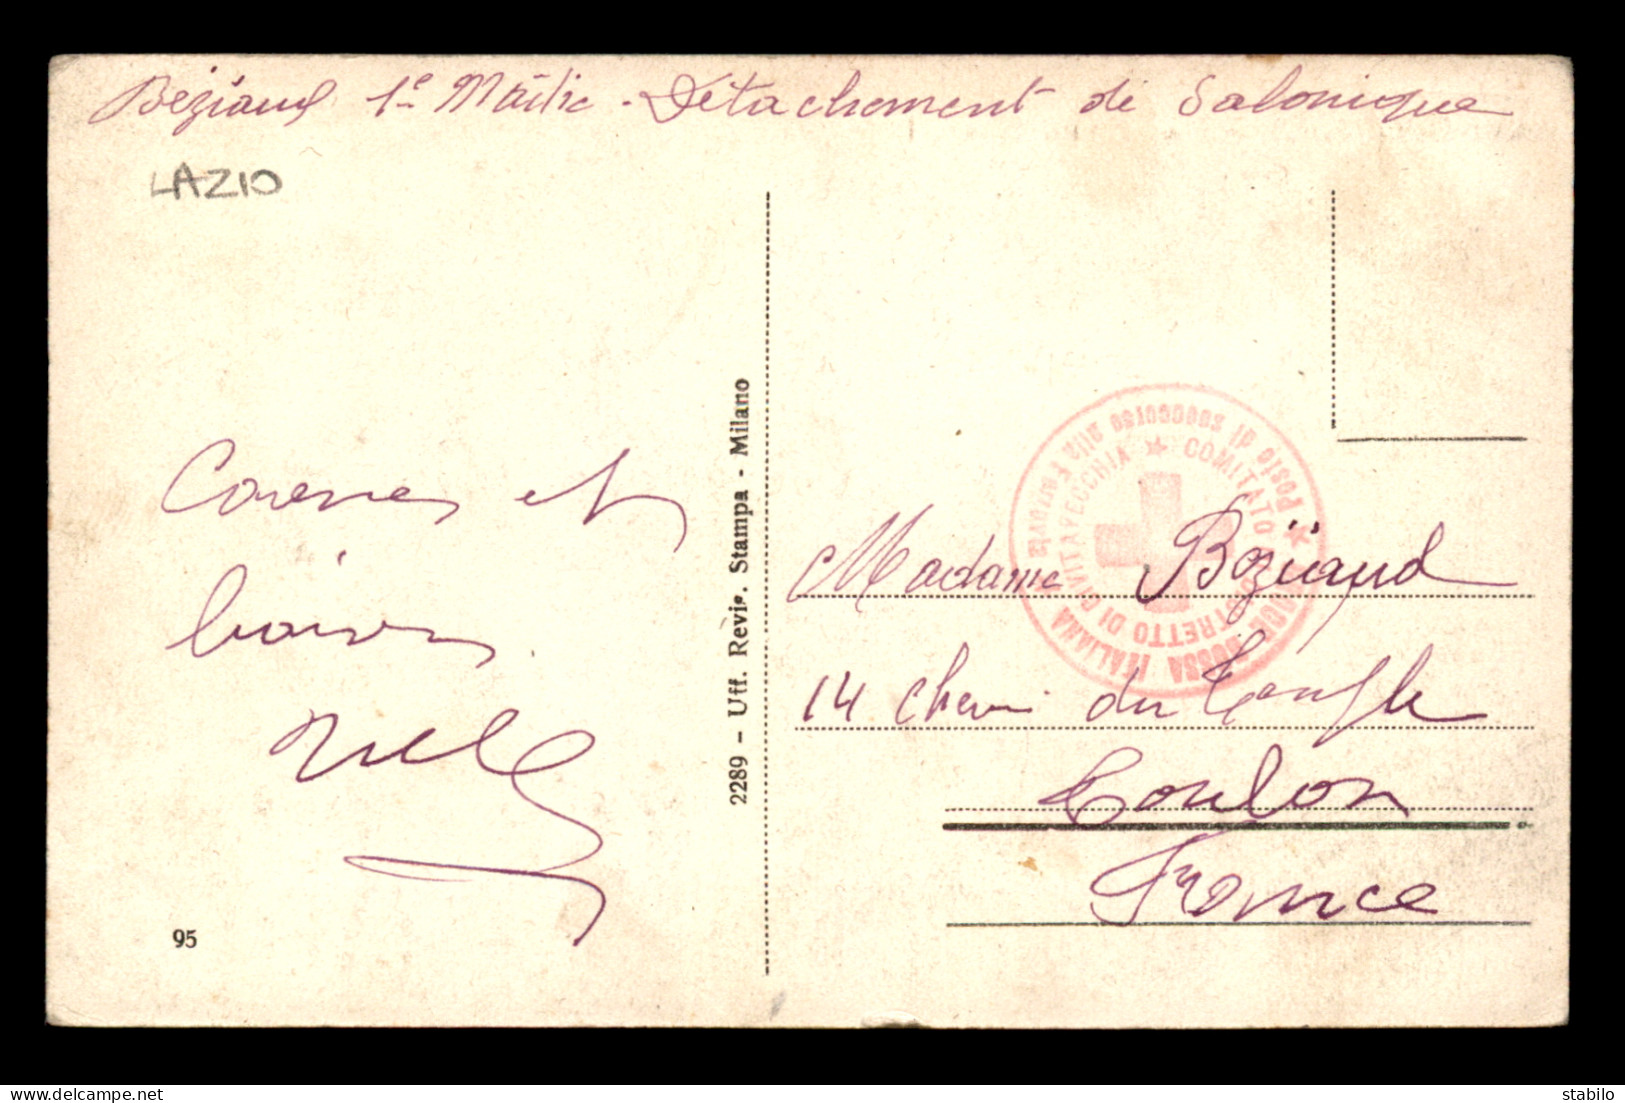 Béziaud 1e Mâitre - Détachement de Salonique
LAZIO
Caresses et
baisers
2289 - Uff. Revis. Stampa - Milano
95
CROCE ROSSA ITALIANA
Posto di soccorso alla Ferrovia
COMITATO DISTRETTO DI CIVITAVECCHIA
Madame Béziaud
14 Chemin du Temple
Toulon
France
delcampe.net
stabilo